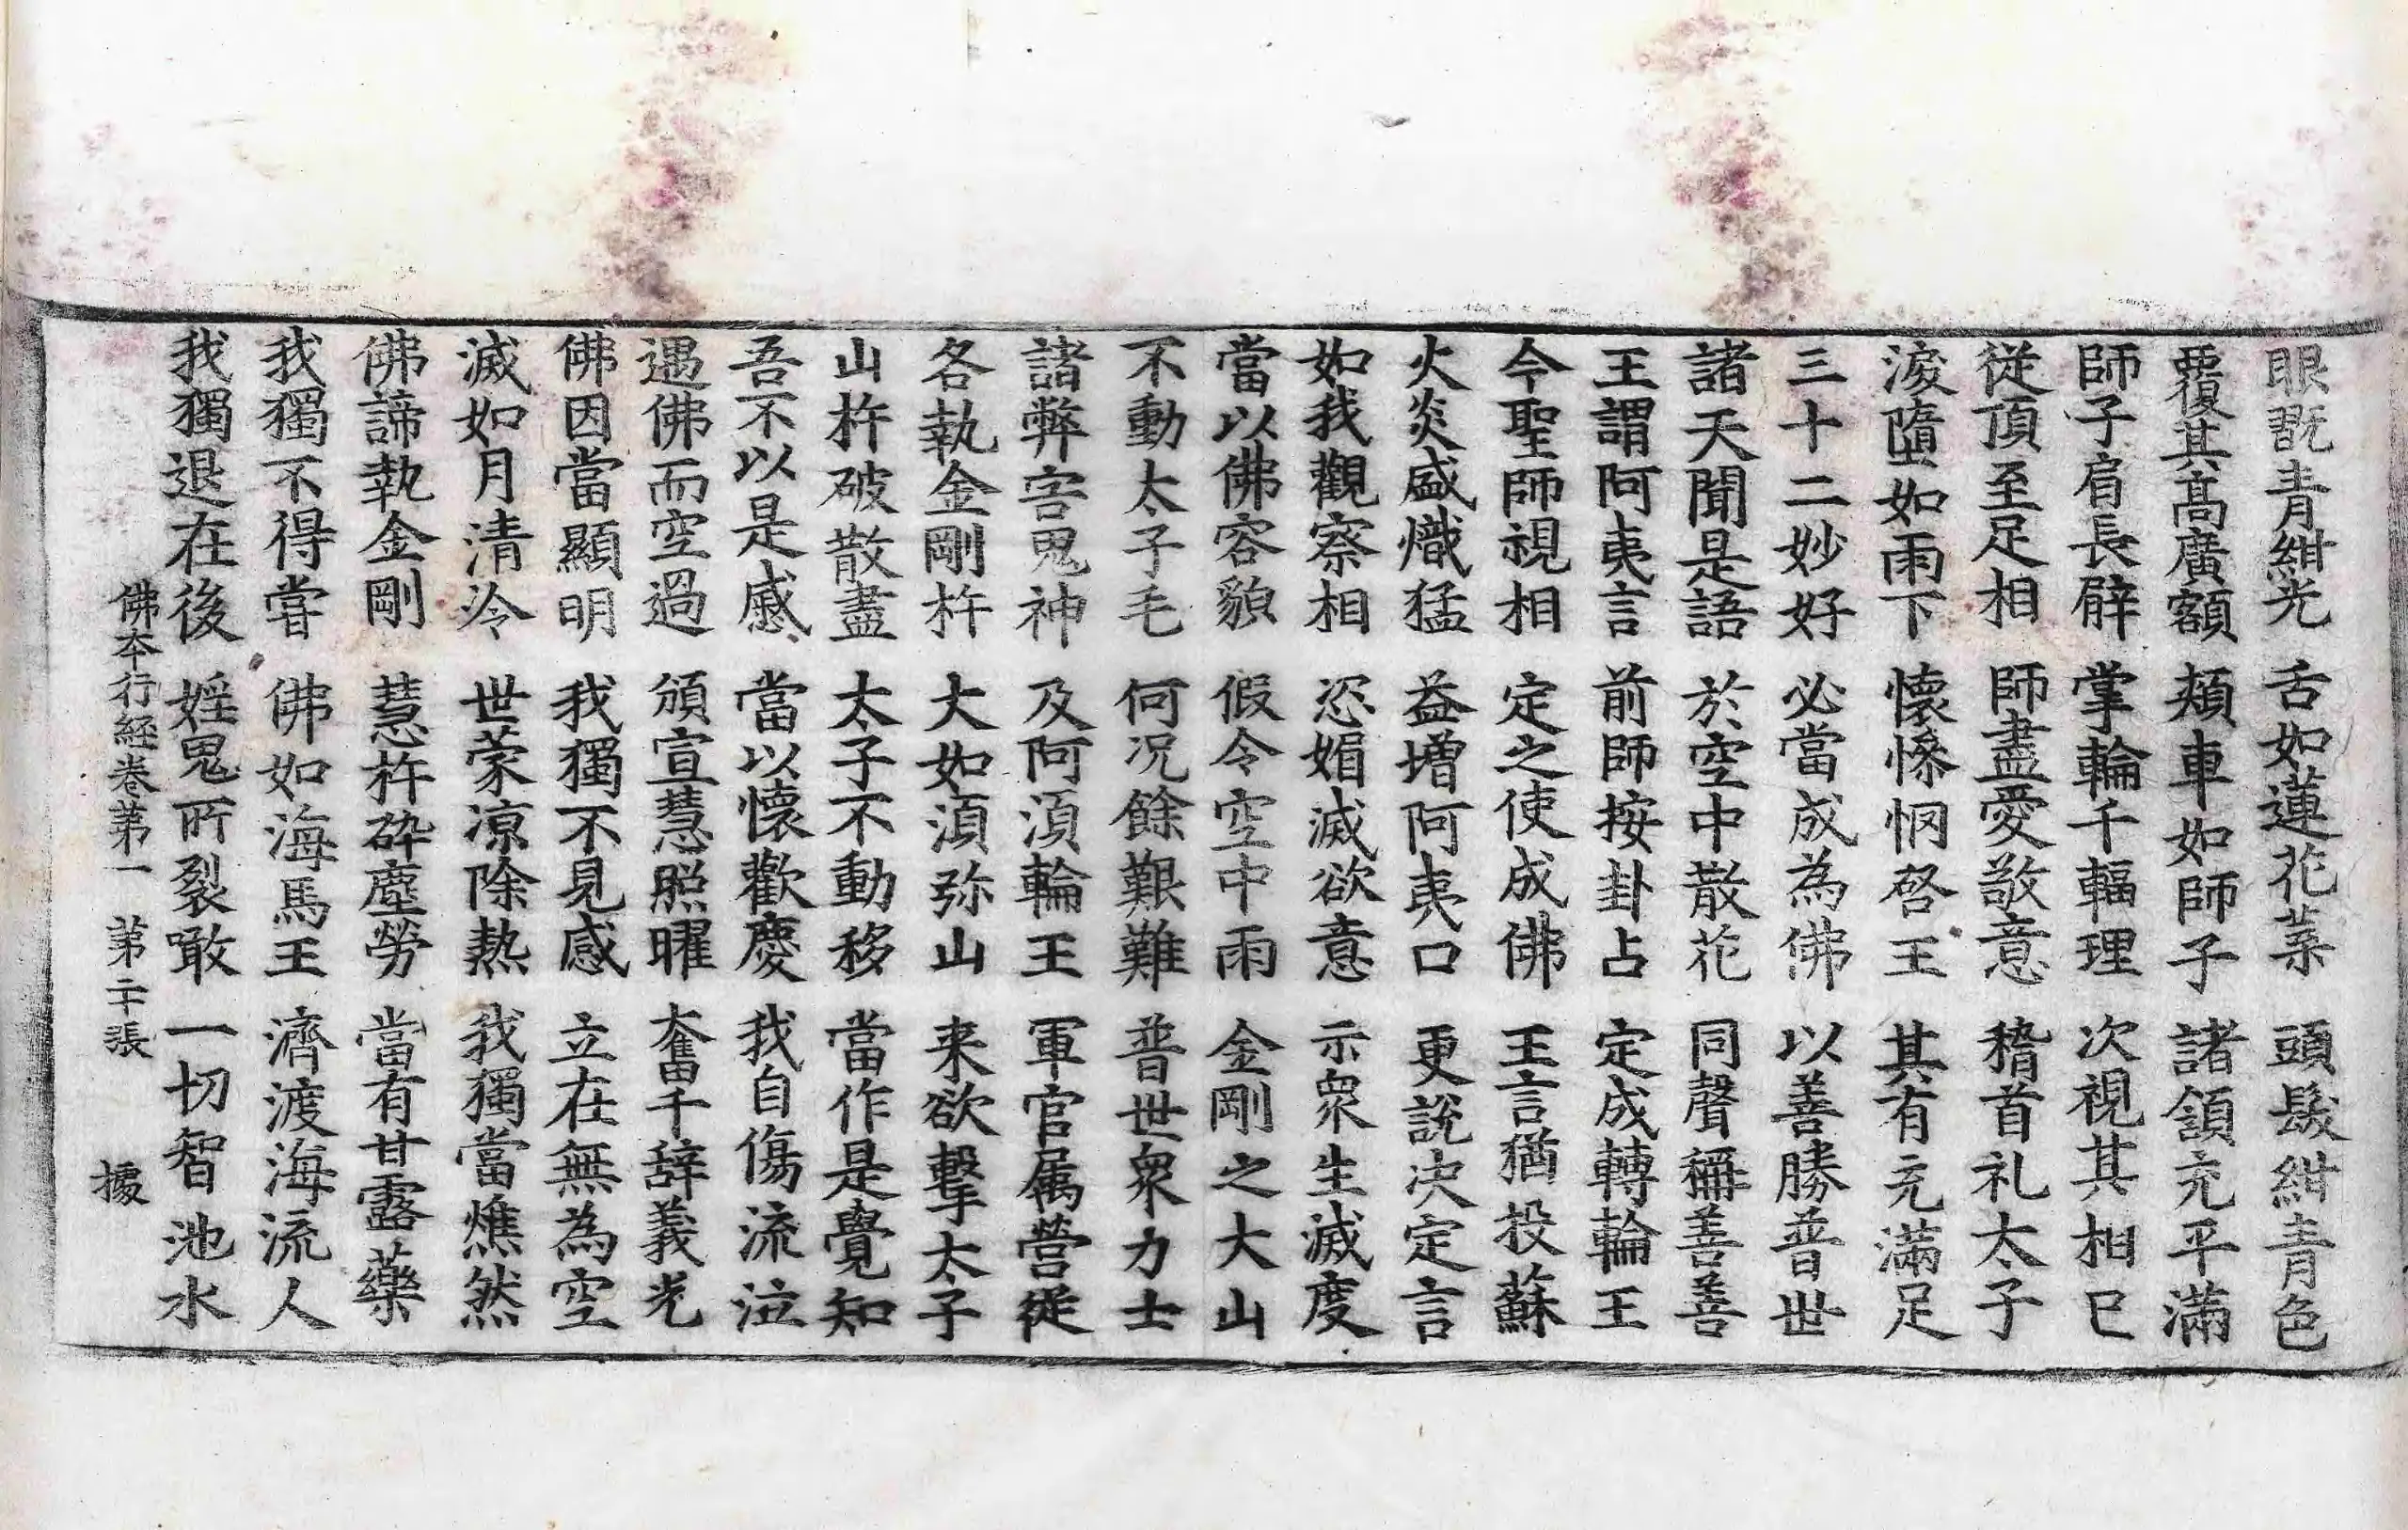 眼既青紺光　舌如蓮花葉　頭髮紺青色
覆其高廣額　頰車如師子　諸頷充平滿
師子肩長臂　掌輪千輻理　次視其相已
從頂至足相　師盡愛敬意　稽首礼太子
淚墮如雨下　懷慘惘啓王　其有充滿足
三十二妙好　必當成為佛　以善勝普世
諸天聞是語　於空中散花　同聲稱善善
王謂阿夷言　前師按卦占　定成轉輪王
今聖師視相　定之使成佛　王言猶投蘇
火炎盛熾猛　益增阿夷口　更說决定言
如我觀察相　恣媚滅欲意　示眾生滅度
當以佛容貌　假令空中雨　金剛之大山
不動太子毛　何况餘艱難　普世眾力士
諸弊害鬼神　及阿須輪王　軍官属營從
各執金剛杵　大如須弥山　来欲擊太子
山杵破散盡　太子不動移　當作是覺知
吾不以是慼　當以懷歡慶　我自傷流泣
遇佛而空過　頒宣慧照曜　奮千辞義光
佛因當顯明　我獨不見感　立在無為空
滅如月清冷　世蒙凉除熱　我獨當燋然
佛諦執金剛　慧杵碎塵勞　當有甘露藥
我獨不得嘗　佛如海馬王　濟渡海流人
我獨退在後　婬鬼所裂噉　一切智池水
佛本行經卷第一　第二十張　據